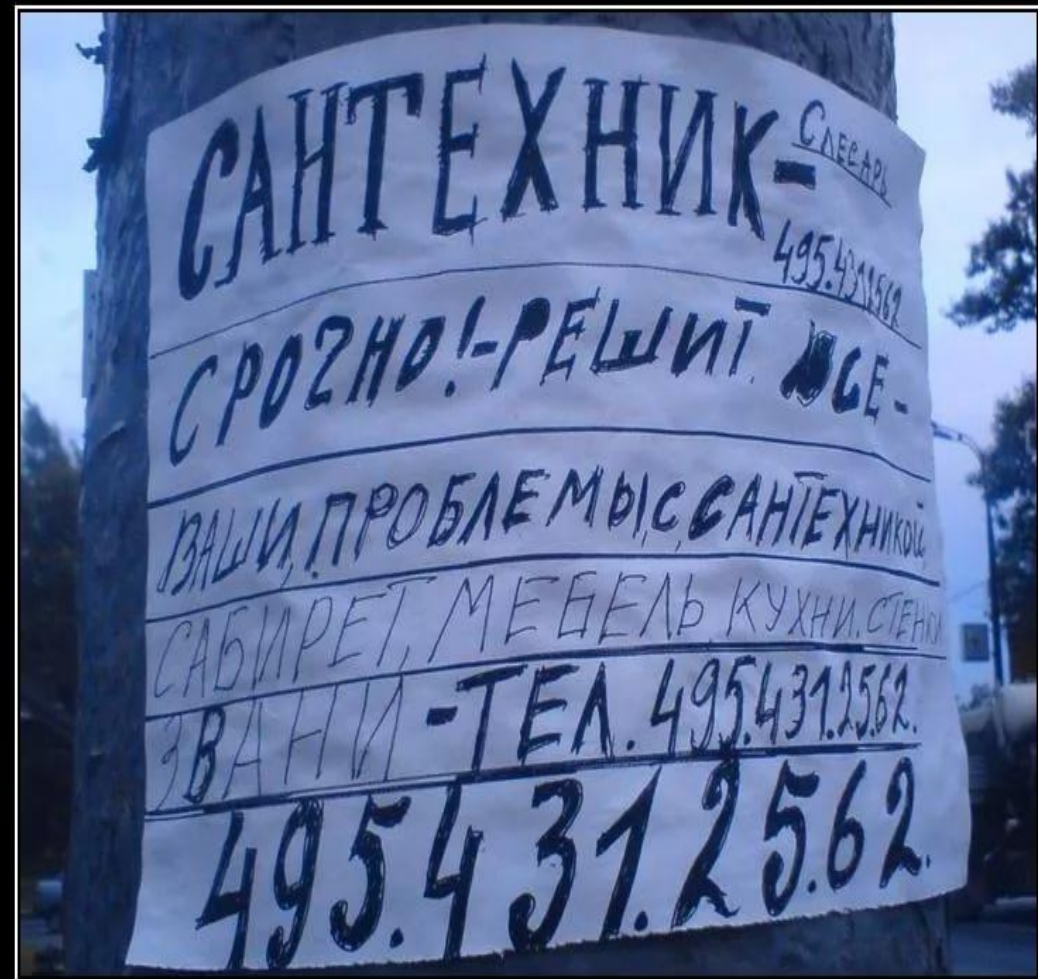 САНТЕХНИК-
СЛЕСАРЬ
495.4312562
СРОЧНО!-РЕШИТ ВСЕ-
ВАШИ, ПРОБЛЕМЫ, С, САНТЕХНИКОЙ
САБИРЕТ, МЕБЕЛЬ, КУХНИ. СТЕНКИ
ЗВАНИ-ТЕЛ. 495.431.25.62.
495.431.25.62.